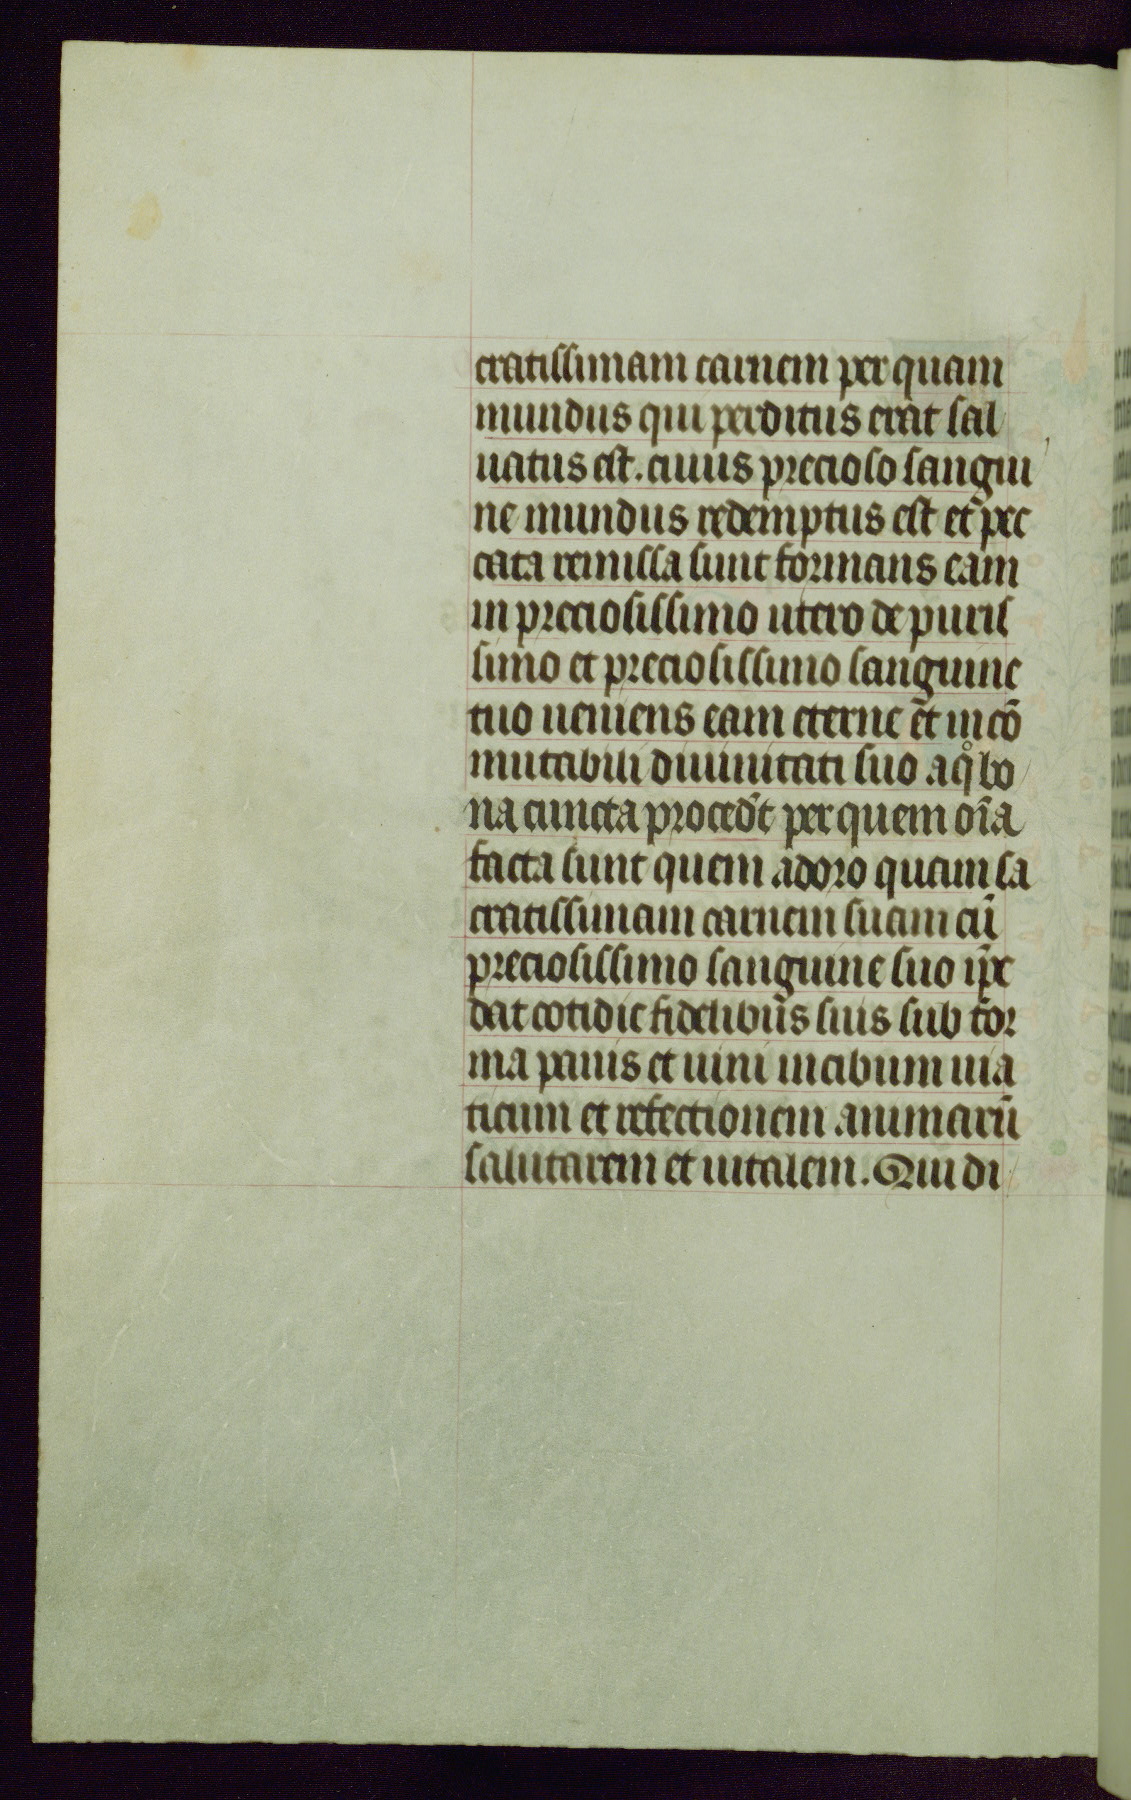 cratissimam carnem per quam
mundus qui perditus erat sal
uatus est. cuius precioso sangui
ne mundus redemptus est et pec
cata remissa sunt formans eam
in preciosissimo utero de puris
simo et preciosissimo sanguine
tuo ueniens eam eterne et incō
mutabili diuinitati suo a qͦ bo
na cuncta procedūt per quem oīa
facta sunt quem adoro quam sa
cratissimam carnem suam cū
preciosissimo sanguine suo ip̄e
dat cotidie fidelibus suis sub for
ma panis et uini in cibum uia
ticum et refectionem animarū
salutarem et uitalem. Qui di